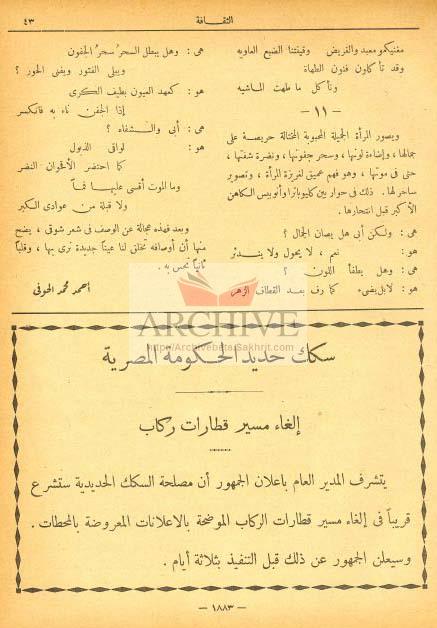 الثقافة
٤٣
مغنيكمو معبد والقريض وقينتنا الضبع العاويه
وقد تأكلون فنون الطهاة
ونأكل ما طهت الماشيه
— ١١ —
ويصور المرأة الجميلة المحبوبة المختالة حريصة على
جمالها، وإضاءة لونها، وسحر جفونها، ونضرة شفتها،
حتى فى موتها، وهو فهم عميق لغريزة المرأة، وتصوير
ساخر لها. ذلك فى حوار بين كليوباترا وأنوبيس الكاهن
الأكبر قبل انتحارها.
هى : ولكن أبى هل يصان الجمال ؟
هو : نعم ، لا يحول ولا يندثر
هى : وهل يطفأ اللون ؟
هو : لا بل يضىء كما رف بعد القطاف الزهر
هى : وهل يبطل السحرُ سحرُ الجفون
ويبلى الفتور ويفنى الحور ؟
هو : كعهد العيون بطيف الكرى
إذا الجفن ناء به فانكسر
هى : أبى والشفاء ؟
هو : لواقى الذبول
كما احتضر الأقحوان النضر
وما الموت أقسى عليها فماً
ولا قبلة من عوادى الكبر
وبعد فهذه عجالة عن الوصف فى شعر شوقى، يضح
منها أن أوصافه تخلق لنا عيناً جديدة نرى بها، وقلباً
ثانياً نحس به .
أحمد محمد الحوفى
ARCHIVE
http://Archivebeta.Sakhrit.com
سكك حديد الحكومة المصرية
إلغاء مسير قطارات ركاب
يتشرف المدير العام باعلان الجمهور أن مصلحة السكك الحديدية ستشرع
قريباً فى إلغاء مسير قطارات الركاب الموضحة بالاعلانات المعروضة بالمحطات .
وسيعلن الجمهور عن ذلك قبل التنفيذ بثلاثة أيام .
— ١٨٨٣ —